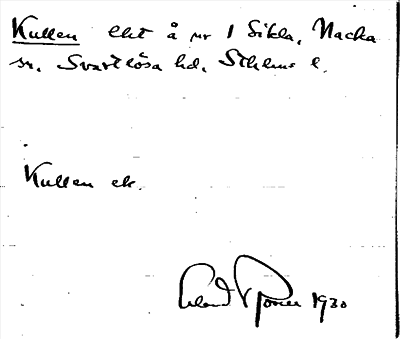 Kullen lht å nr 1 Sikla, Nacka
sn. Svartlösa hd. Sthlms l.
Kullen ek.
1930